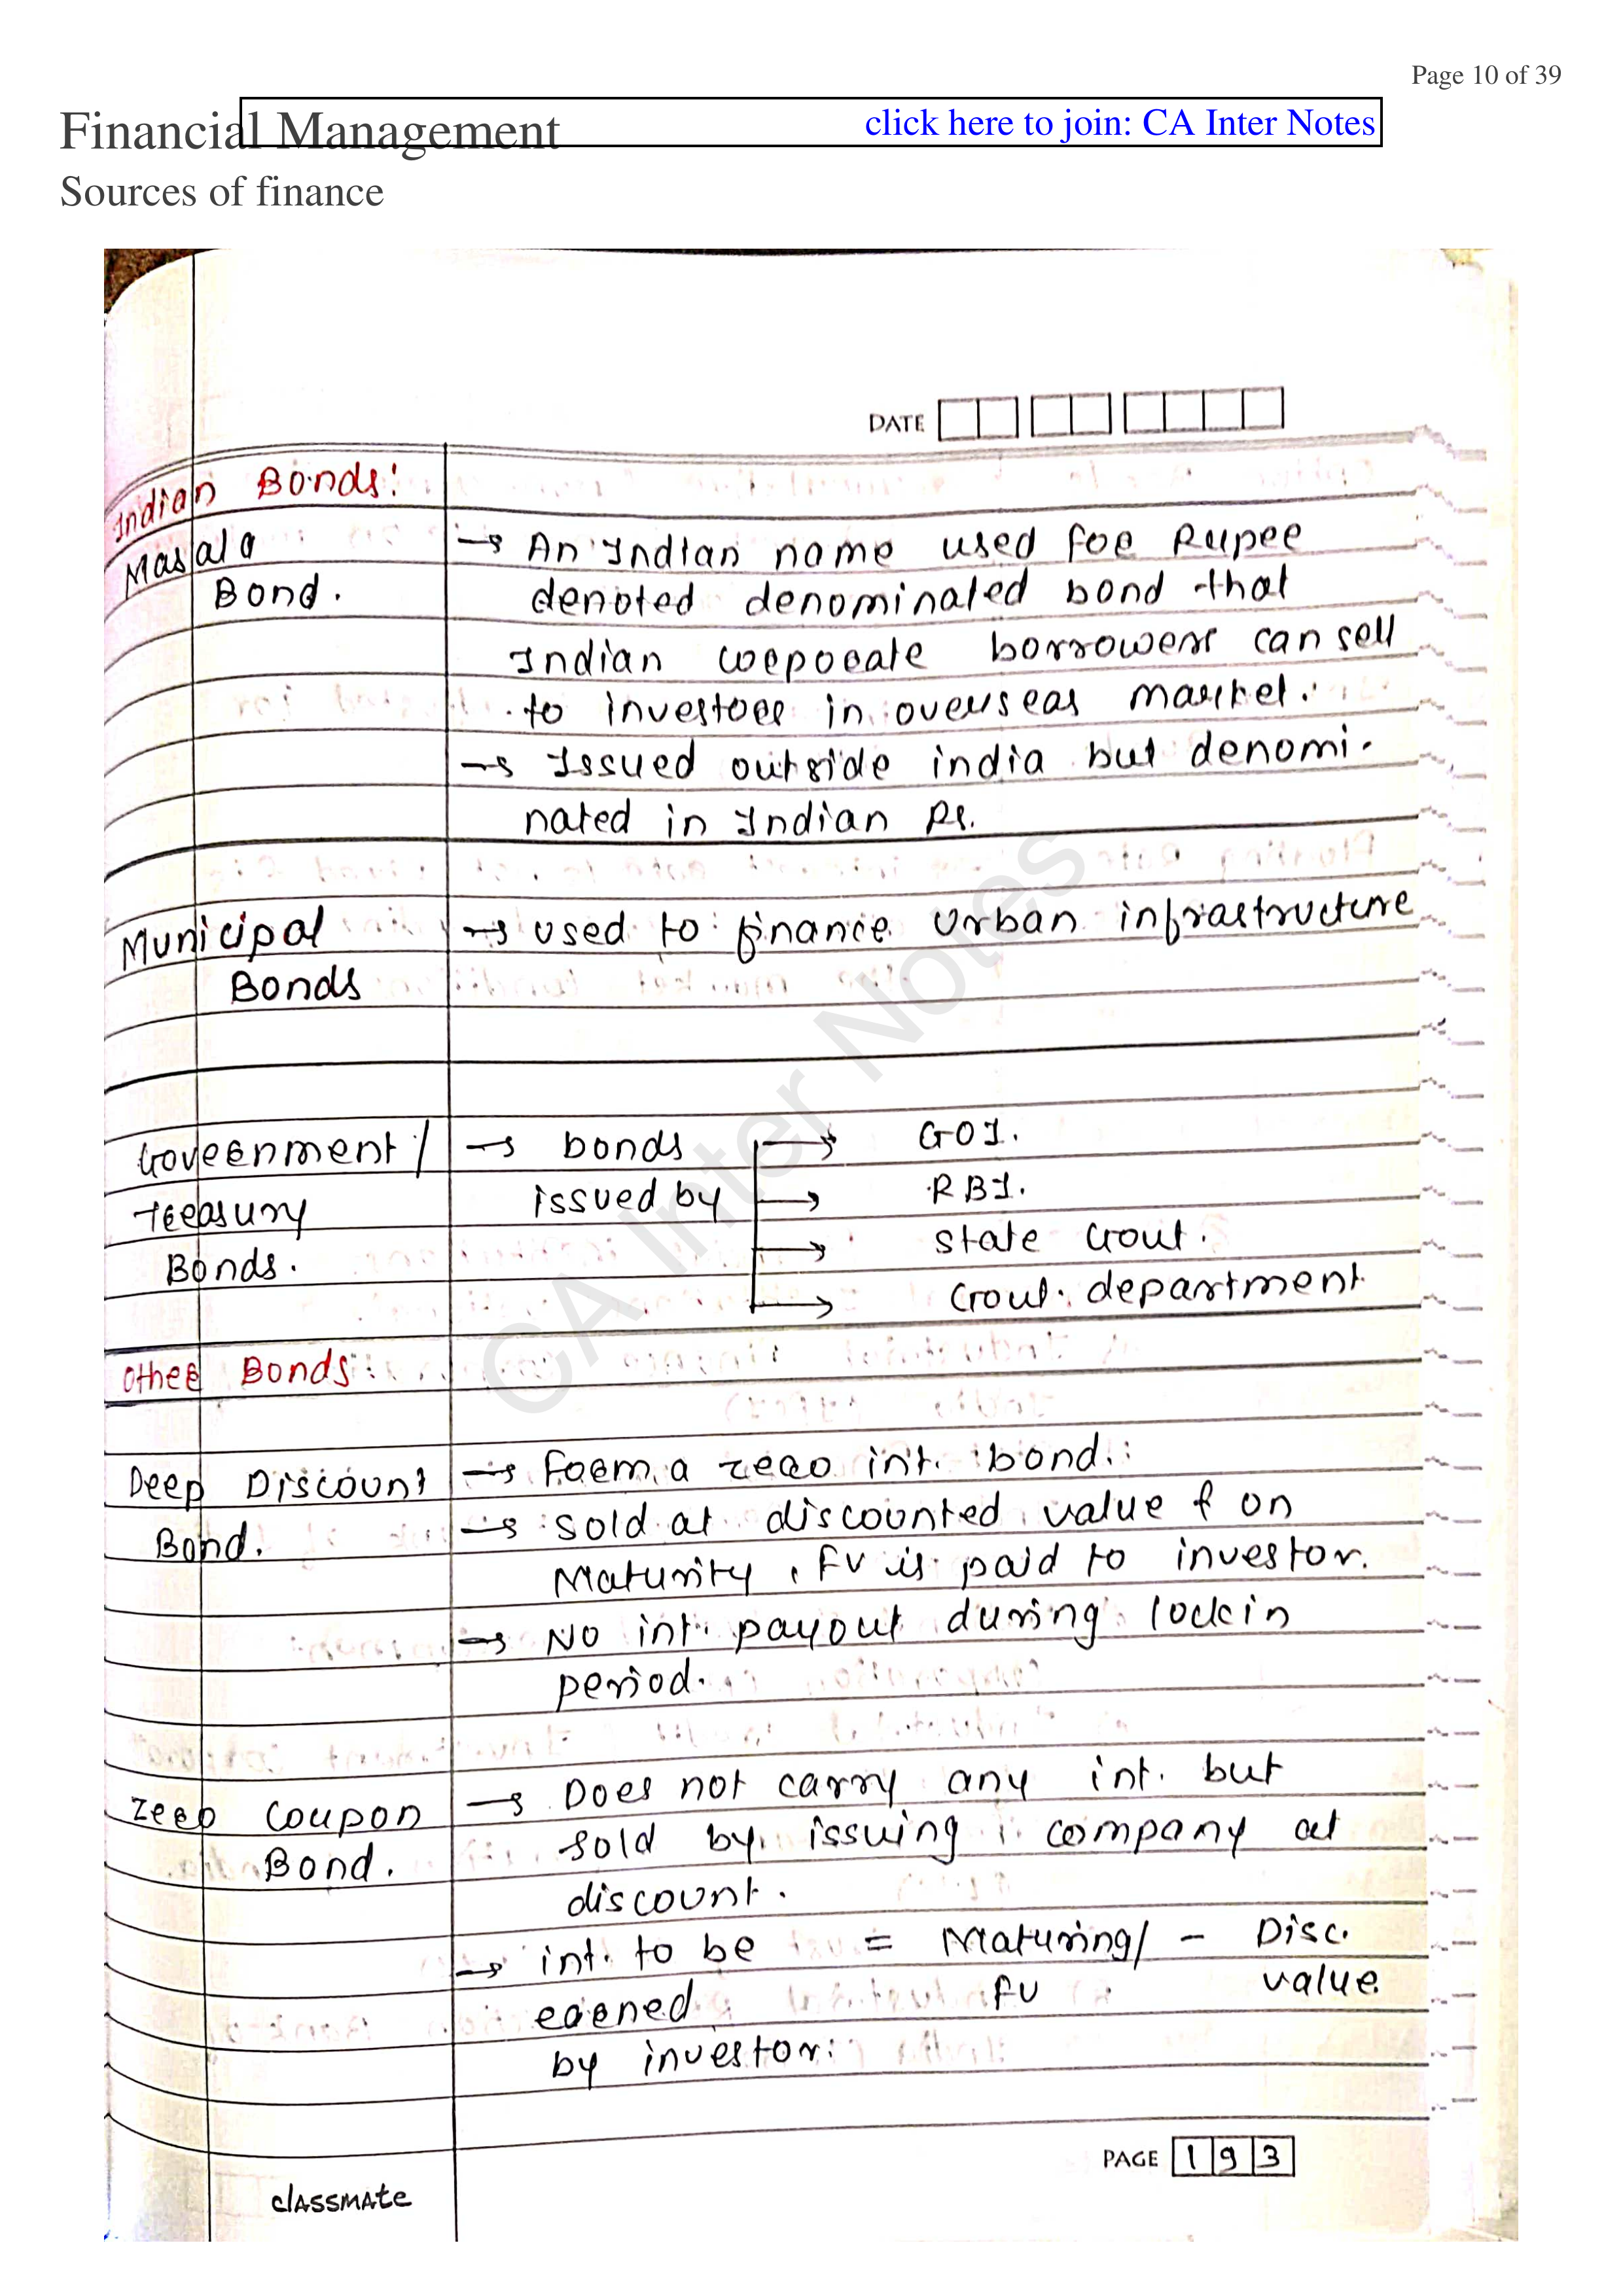 Page 10 of 39
Financial Management
click here to join: CA Inter Notes
Sources of finance
DATE
Indian Bonds:
Masala Bond.
→ An Indian name used for Rupee
denoted denominated bond that
Indian corporate borrowers can sell
to investors in overseas market.
→ Issued outside india but denomi-
nated in Indian Rs.
Municipal Bonds
→ used to finance urban infrastructure
Government/ Treasury Bonds.
→ bonds issued by
→ GOI.
→ RBI.
→ state Govt.
→ Govt. department
Other Bonds:
Deep Discount Bond.
→ Form a zero int. bond.
→ sold at discounted value & on
Maturity, FV is paid to investor.
→ No int. payout during lockin
period.
Zero Coupon Bond.
→ Does not carry any int. but
sold by issuing company at
discount.
→ int. to be = Maturing/ - Disc.
earned FV value
by investor.
CA Inter Notes
PAGE 193
classmate